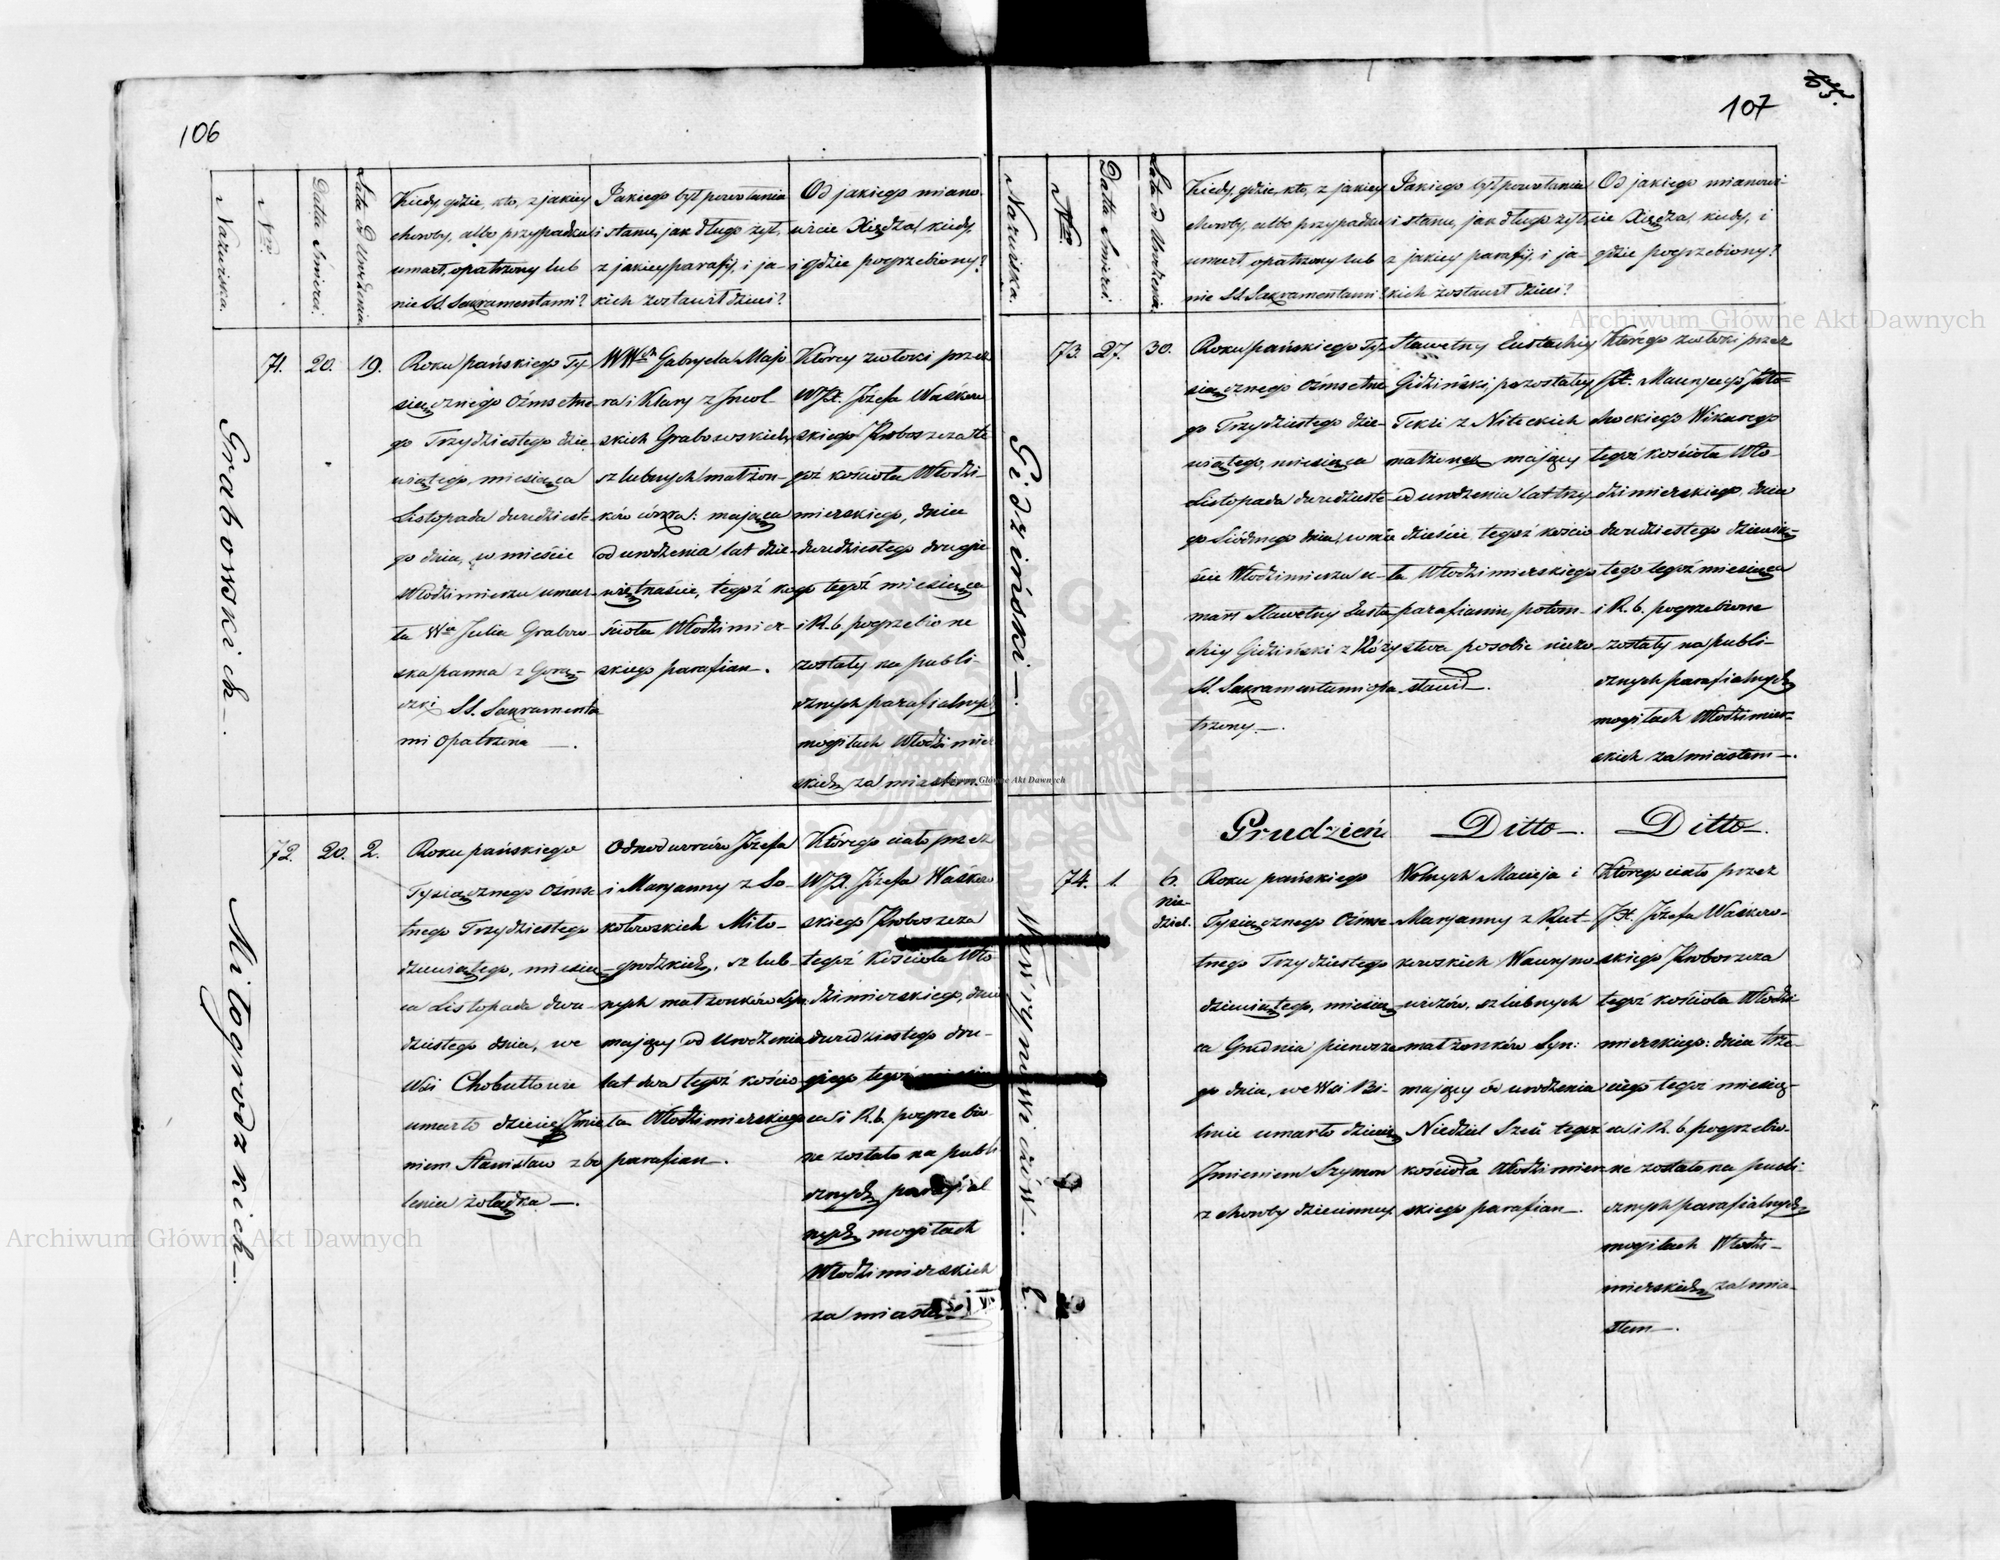 106
Nazwiska.
Nro.
Datta Śmierci.
Lata od Urodzenia.
Kiedy, gdzie, kto, z jakiey
choroby, albo przypadku
umarł, opatrzony lub
nie SS. Sakramentami?
Jakiego był powołania
i stanu, jak długo żył,
z jakiey parafij, i ja-
kich zostawił dzieci?
Od jakiego miano-
wicie Xiędza, kiedy,
i gdzie pogrzebiony?
Grabowskich—
71.
20.
19.
Roku pańskiego Ty-
siącznego Ośmsetne-
go Trzydziestego dzie-
wiątego, miesiąca
Listopada dwudzieste-
go dnia, w mieście
Włodzimierzu umar-
ła Wa Julia Grabow-
ska panna z Gorą-
czki SS. Sakramenta
mi opatrzona —.
WWch Gabryela Majo
ra i Klary z
skich Grabowskich,
szlubnych małżon-
ków córka: mająca
od urodzenia lat dzie-
więtnaście, tegoż ko-
ścioła Włodzimier-
skiego parafian—.
Którey zwłoki przez
WJX. Józefa Waśkow
skiego Proboszcza te
goż kościoła Włodzi-
mierskiego, dnia
dwudziestego drugie
go tegoż miesiąca
i R. b. pogrzebione
zostały na publi-
cznych parafialnych
mogiłach Włodzimier
skich za miastem.
Miłogrodzkich—.
72.
20.
2.
Roku pańskiego
Tysiącznego Ośmse
tnego Trzydziestego
dziewiątego, miesią-
ca Listopada dwu-
dziestego dnia, we
Wsi Chobułtowie
umarło dziecię Imie
niem Stanisław z bo
lenia żołądka —.
Odnodworców Józefa
i Maryanny z So-
kołowskich Miło-
grodzkich, szlub-
nych małżonków Syn
mający od Urodzenia
lat dwa tegoż kościo
ła Włodzimierskiego
parafian—.
Którego ciało przez
WJX. Józefa Waśkow
skiego Proboszcza
tegoż Kościoła Wło
dzimierskiego, dnia
dwudziestego dru-
giego tegoż miesią
ca i R. b. pogrzebio
ne zostało na publi
cznych parafial
nych mogiłach
Włodzimierskich
za miastem
107
Nazwiska.
Nro.
Datta Śmierci.
Lata od Urodzenia.
Kiedy, gdzie, kto, z jakiey
choroby, albo przypadku
umarł, opatrzony lub
nie SS. Sakramentami?
Jakiego był powołania
i stanu, jak długo żył,
z jakiey parafij, i ja-
kich zostawił dzieci?
Od jakiego mianowi-
cie Xiędza, kiedy, i
gdzie pogrzebiony?
Gidziński—.
73.
27.
30.
Roku pańskiego Ty-
siącznego Ośmsetne
go Trzydziestego dzie-
wiątego, miesiąca
Listopada dwudzieste-
go Siódmego dnia, w mie
ście Włodzimierzu u-
marł Sławetny Eusta
chiy Gidziński z
SS. Sakramentami opa
trzony—.
Sławetny Eustachiy
Gidziński, pozostałey
Tekli z Niteckich
małżonek mający
od urodzenia lat trzy
dzieście, tegoż kościo
ła Włodzimierskiego
parafianin, potom-
stwa po sobie niezo-
stawił—.
Którego zwłoki przez
JX.
Wikarego
tegoż kościoła Wło
dzimierskiego, dnia
dwudziestego dziewią-
tego tegoż miesiąca
i R. b. pogrzebione
zostały na publi-
cznych parafialnych
mogiłach Włodzimier-
skich za miastem—.
Wawrynowiczów—.
74.
1.
6.
nie-
dziel.
Grudzień
Roku pańskiego
Tysiącznego Ośmse
tnego Trzydziestego
dziewiątego, miesią
ca Grudnia pierwsze
go dnia, we Wsi Bi-
linie umarło dziecię
Imieniem Szymon
z choroby dziecinney.
Ditto—.
Wolnych Macieja i
Maryanny z Rut-
kowskich Wawryno
wiczów, szlubnych
małżonków Syn:
mający od urodzenia
Niedziel Sześć tegoż
kościoła Włodzimier-
skiego parafian—.
Ditto—.
Którego ciało przez
JX. Józefa Waśkow-
skiego Proboszcza
tegoż kościoła Włodzi
mierskiego: dnia trze-
ciego tegoż miesią-
ca i R. b. pogrzebio-
ne zostało na publi-
cznych parafialnych
mogiłach Włodzi-
mierskich za mia-
stem—.
Archiwum Główne Akt Dawnych
Archiwum Główne Akt Dawnych
Archiwum Główne Akt Dawnych